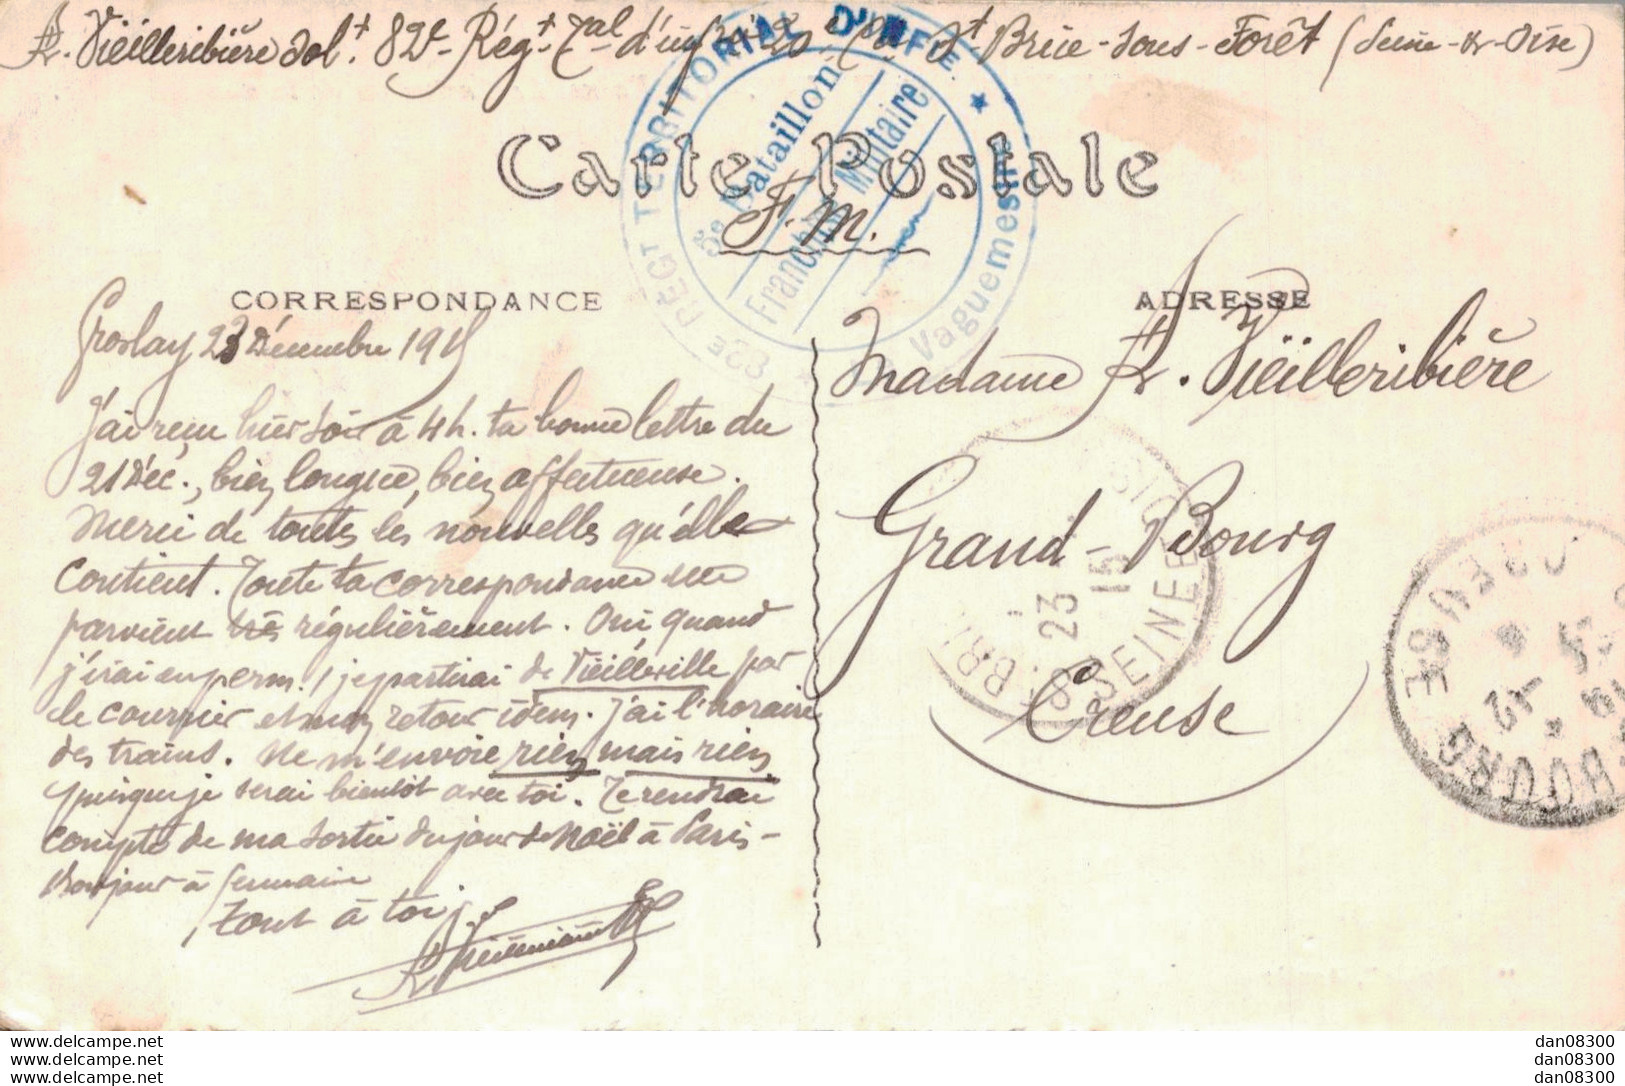 A. Vieilleribière sol.t 82e Rég.t Tal d'inf.ie 20e Cie St Brice-sous-Forêt (Seine-&-Oise)
82e RÉGT TERRITORIAL D'INFIE ★
5e Bataillon
Franchise Militaire
Vaguemestre
Carte Postale
F.M.
CORRESPONDANCE
Groslay 23 Décembre 1915
J'ai reçu hier soir à 4 h. ta bonne lettre du
21 Déc., bien longue, bien affectueuse.
Merci de toutes les nouvelles qu'elle
contient. Toute ta correspondance me
parvient très régulièrement. Oui quand
j'irai en perm. je partirai de Vieilleville par
le courrier et mon retour idem. J'ai l'horaire
des trains. Ne m'envoie rien mais rien
puisque je serai bientôt avec toi. Te rendrai
compte de ma sortie du jour de Noël à Paris-
Bonjour à Germaine
Tout à toi
A Vieilleribière
ADRESSE
Madame A. Vieilleribière
Grand-Bourg
Creuse
23
15
SEINE
BOURG
CREUSE
dan08300
dan08300
dan08300
dan08300
dan08300
dan08300